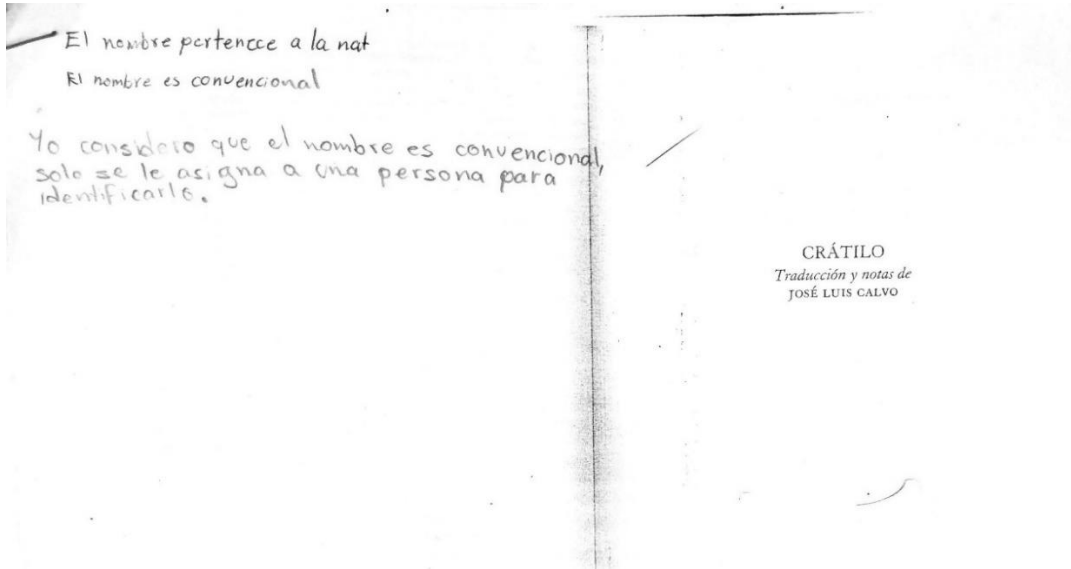 El nombre pertenece a la nat
El nombre es convencional
Yo considero que el nombre es convencional,
solo se le asigna a una persona para
identificarlo.
CRÁTILO
Traducción y notas de
JOSÉ LUIS CALVO